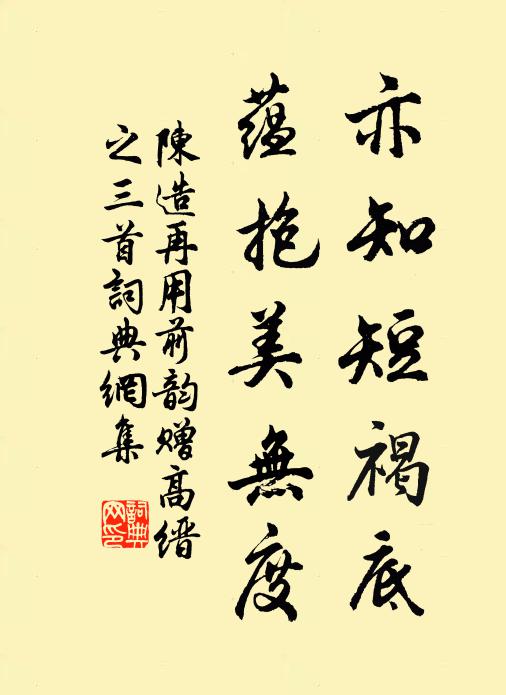 亦知短褐底
蕴抱美無度
陳造再用前韵贈高缙
之三首詞典網集
詞典網印